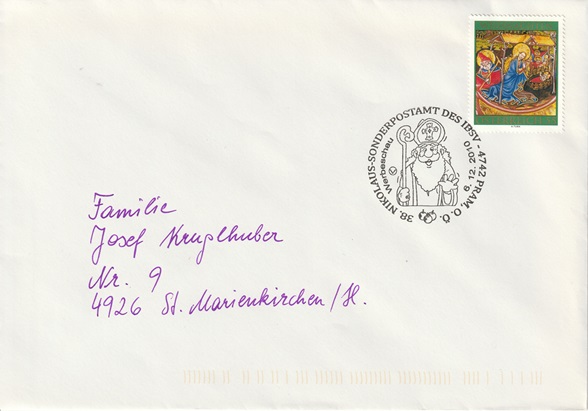 38. NIKOLAUS-SONDERPOSTAMT DES IBSV - 4742 PRAM, O.Ö.
Werbeschau
6. 12. 2010
Familie
Josef Kruglhuber
Nr. 9
4926 St. Marienkirchen/H.